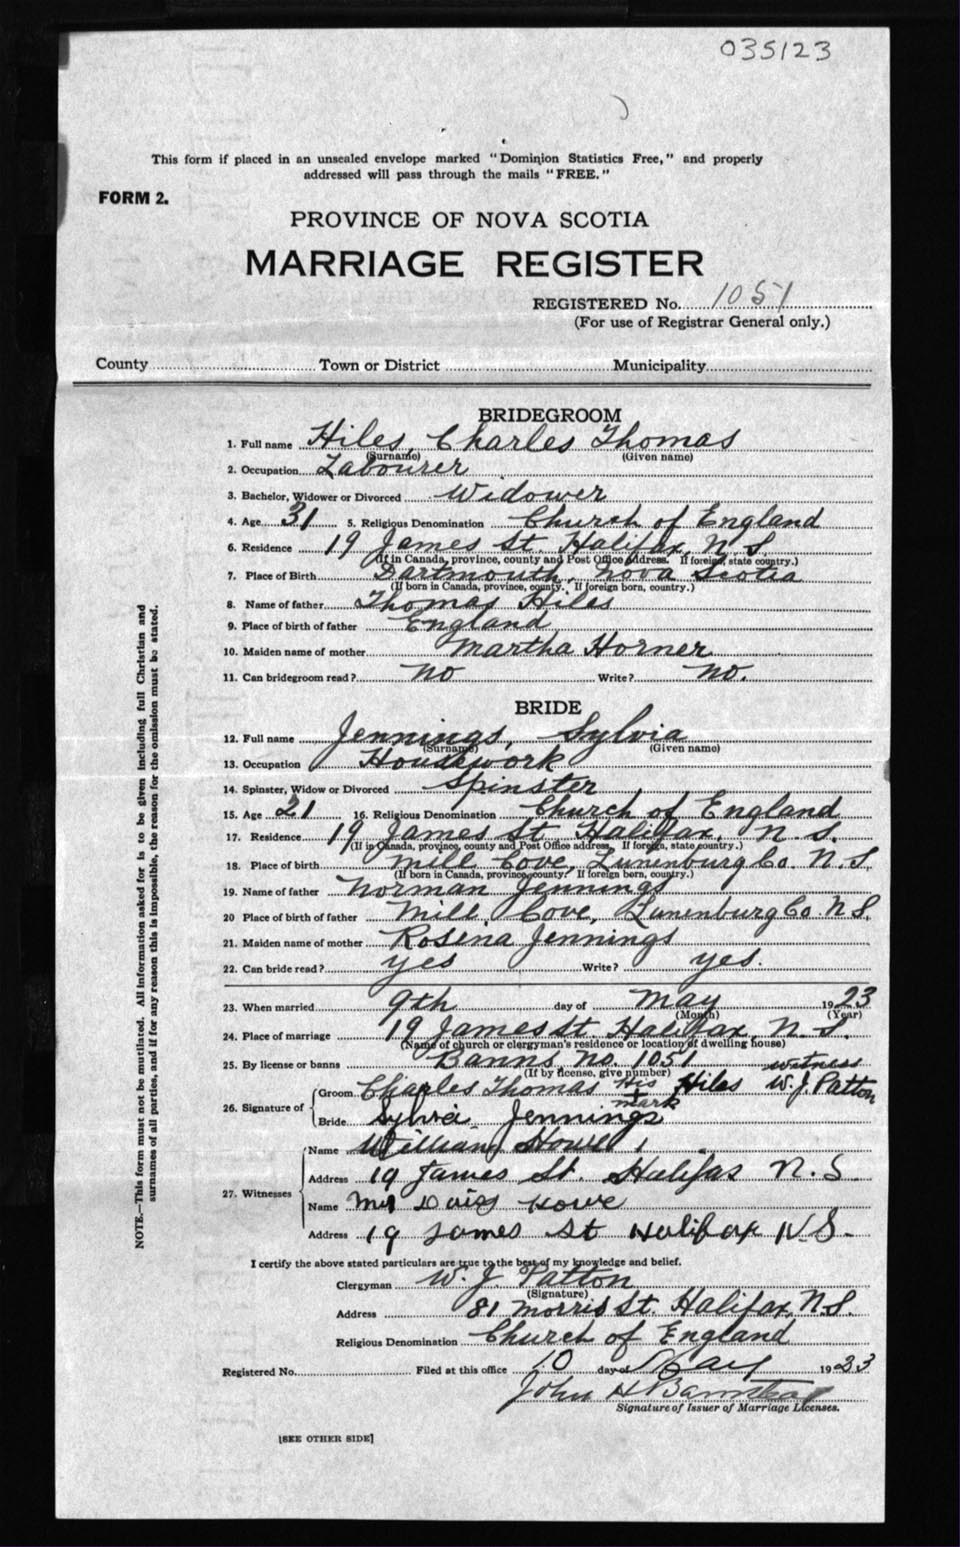 035123
This form if placed in an unsealed envelope marked "Dominion Statistics Free," and properly
addressed will pass through the mails "FREE."
FORM 2.
PROVINCE OF NOVA SCOTIA
MARRIAGE REGISTER
REGISTERED No. 1051
(For use of Registrar General only.)
County Town or District Municipality
BRIDEGROOM
1. Full name Hiles, Charles Thomas
(Surname) (Given name)
2. Occupation Labourer
3. Bachelor, Widower or Divorced Widower
4. Age 31 5. Religious Denomination Church of England
6. Residence 19 James St. Halifax, N.S.
(If in Canada, province, county and Post Office address. If foreign, state country.)
7. Place of Birth Dartmouth, Nova Scotia
(If born in Canada, province, county. If foreign born, country.)
8. Name of father Thomas Hiles
9. Place of birth of father England
10. Maiden name of mother Martha Horner
11. Can bridegroom read? No Write? No.
BRIDE
12. Full name Jennings, Sylvia
(Surname) (Given name)
13. Occupation Housework
14. Spinster, Widow or Divorced Spinster
15. Age 21 16. Religious Denomination Church of England
17. Residence 19 James St Halifax, N.S.
(If in Canada, province, county and Post Office address, If foreign, state country.)
18. Place of birth Mill Cove, Lunenburg Co. N.S.
(If born in Canada, province, county. If foreign born, country.)
19. Name of father Norman Jennings
20 Place of birth of father Mill Cove, Lunenburg Co. N.S.
21. Maiden name of mother Rosina Jennings
22. Can bride read? yes Write? yes.
23. When married 9th day of May 1923
(Month) (Year)
24. Place of marriage 19 James St. Halifax, N.S.
(Name of church or clergyman's residence or location of dwelling house)
25. By license or banns Banns No. 1051 witness
(If by license, give number)
26. Signature of Groom Charles Thomas His + mark Hiles W. J. Patton
Bride Sylvia Jennings
27. Witnesses Name William Howe
Address 19 James St. Halifax N.S
Name Mrs Daisy Howe
Address 19 James St Halifax N.S.
I certify the above stated particulars are true to the best of my knowledge and belief.
Clergyman W. J. Patton
(Signature)
Address 81 Morris St. Halifax, N.S.
Religious Denomination Church of England
Registered No. Filed at this office 10 day of May 1923
John H Barnstead
Signature of Issuer of Marriage Licenses.
[SEE OTHER SIDE]
NOTE.—This form must not be mutilated. All information asked for is to be given including full Christian and
surnames of all parties, and if for any reason this is impossible, the reason for the omission must be stated.